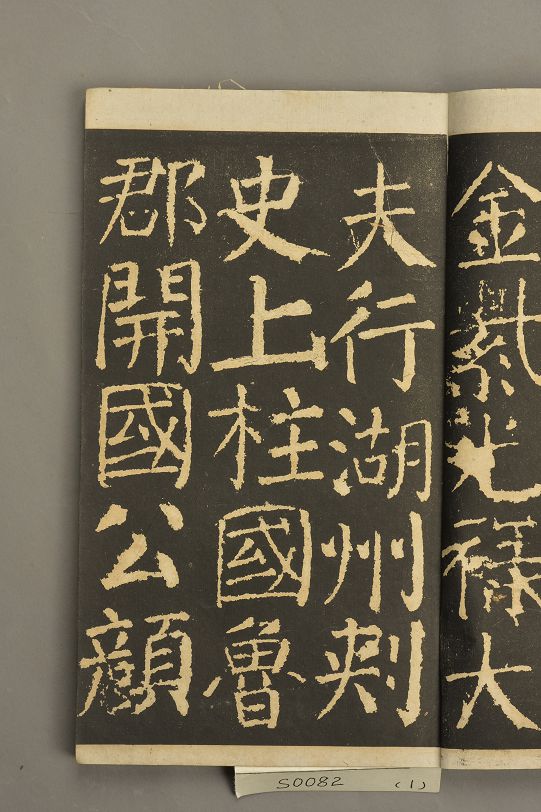 金紫光祿大
夫行湖州刾
史上柱國魯
郡開國公顏
S0082 (1)